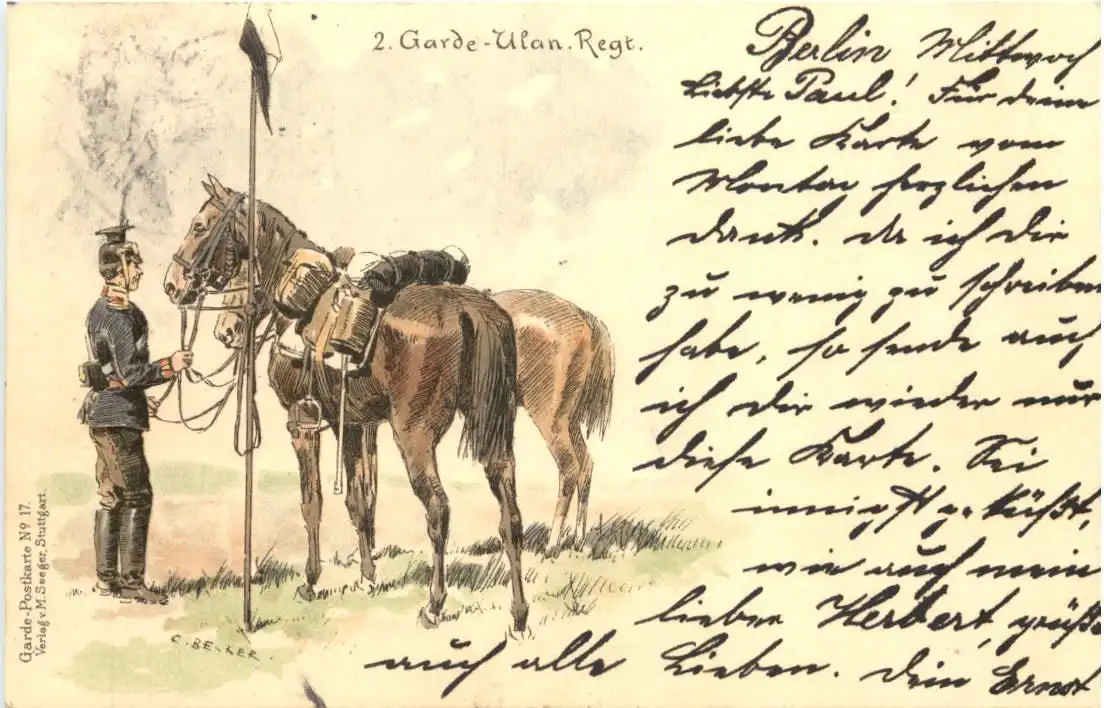 2. Garde-Ulan. Regt.
Berlin Mittwoch
Liebste Paul! Für deine
liebe Karte vom
Montag herzlichen
Dank. Da ich Dir
zu wenig zu schreiben
habe, so sende auch
ich Dir wieder nur
diese Karte. Sei
innigst geküßt,
wie auch mein
lieber Herbert, grüße
auch alle Lieben. Dein Ernst
Garde-Postkarte Nº 17.
Verlag v. M. Seeger, Stuttgart.
C. BECKER.